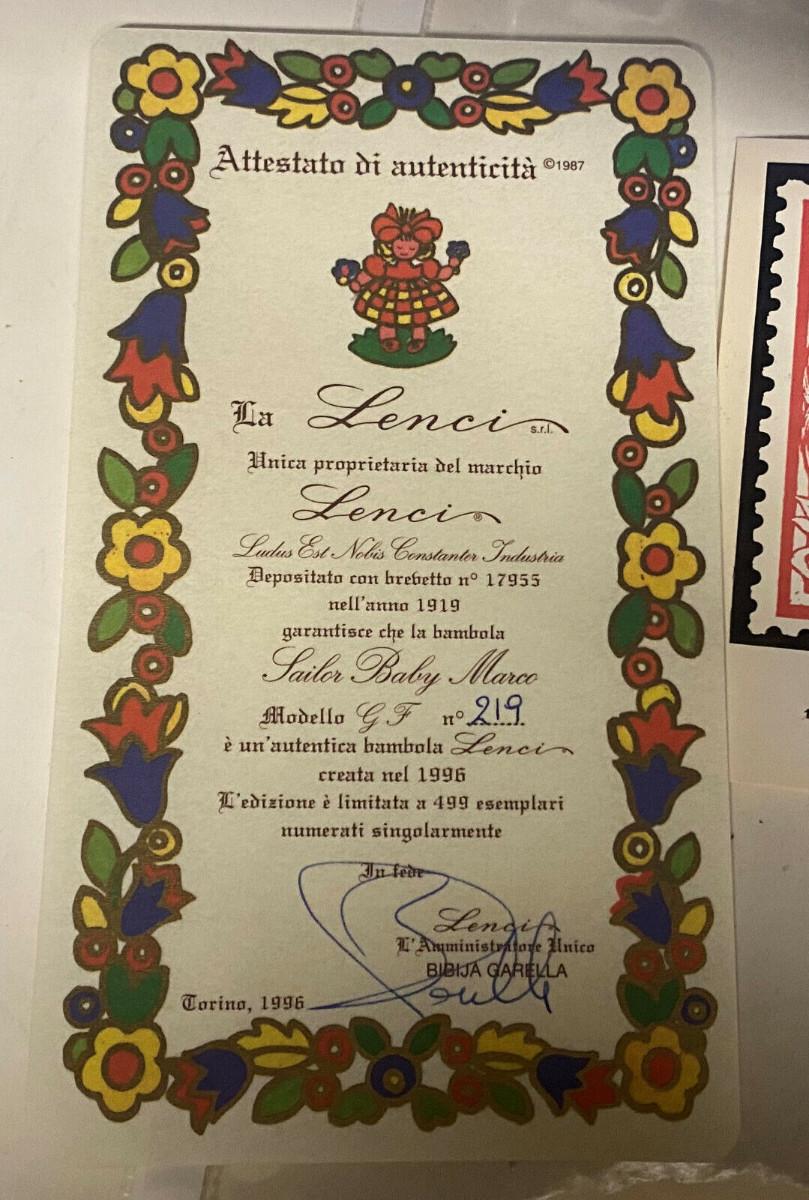 Attestato di autenticità ©1987
La Lenci s.r.l.
Unica proprietaria del marchio
Lenci®
Ludus Est Nobis Constanter Industria
Depositato con brevetto n° 17955
nell'anno 1919
garantisce che la bambola
Sailor Baby Marco
Modello GF n° 219
è un'autentica bambola Lenci
creata nel 1996
L'edizione è limitata a 499 esemplari
numerati singolarmente
In fede
Lenci
L'Amministratore Unico
BIBIJA GARELLA
Torino, 1996